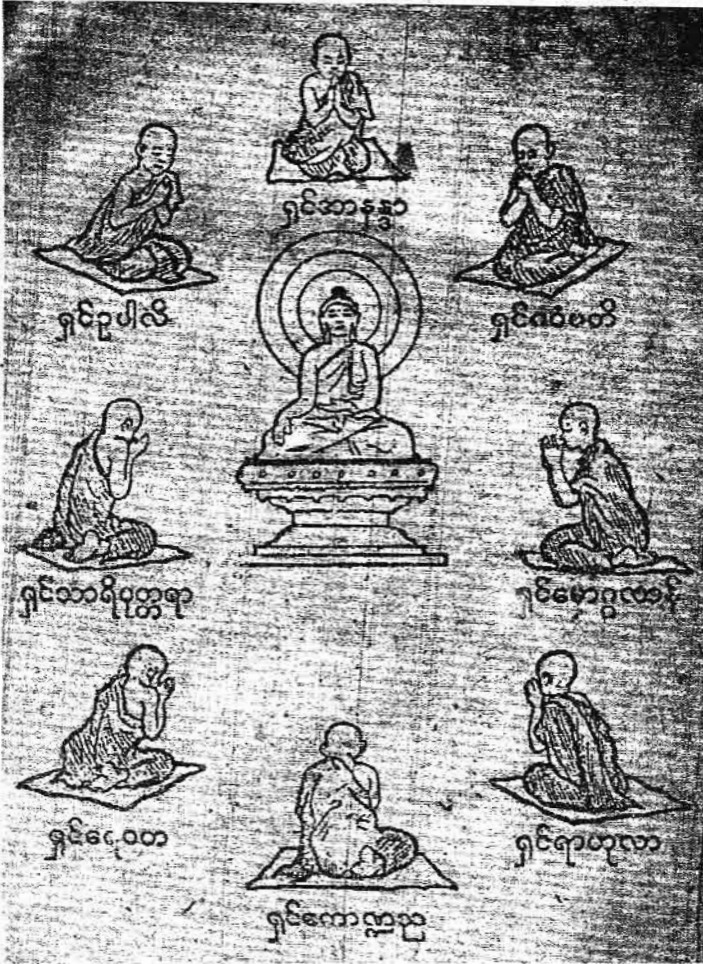 ရှင်အာနန္ဒာ
ရှင်ဥပါလိ
ရှင်ဂဝံပတိ
ရှင်သာရိပုတ္တရာ
ရှင်မောဂ္ဂလာန်
ရှင်ရေဝတ
ရှင်ရာဟုလာ
ရှင်ကောဏ္ဍည